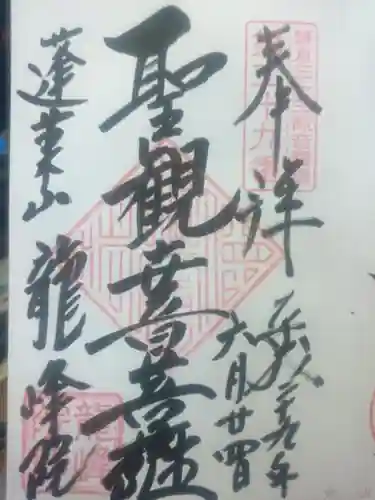 奉拝
平成二十九年
六月廿四日
聖観世音菩薩
蓬莱山
龍峰院